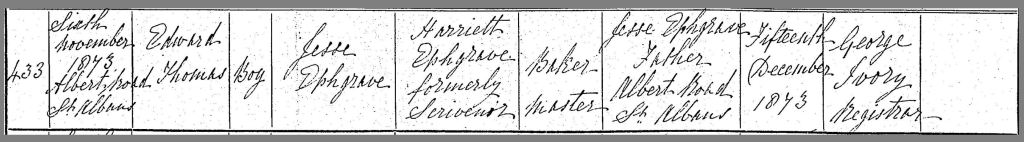 433
Sixth
November
1873
Albert Road
St Albans
Edward
Thomas
Boy
Jesse
Ephgrave
Harriett
Ephgrave
formerly
Scrivenor
Baker
Master
Jesse Ephgrave
Father
Albert Road
St Albans
Fifteenth
December
1873
George
Ivory
Registrar